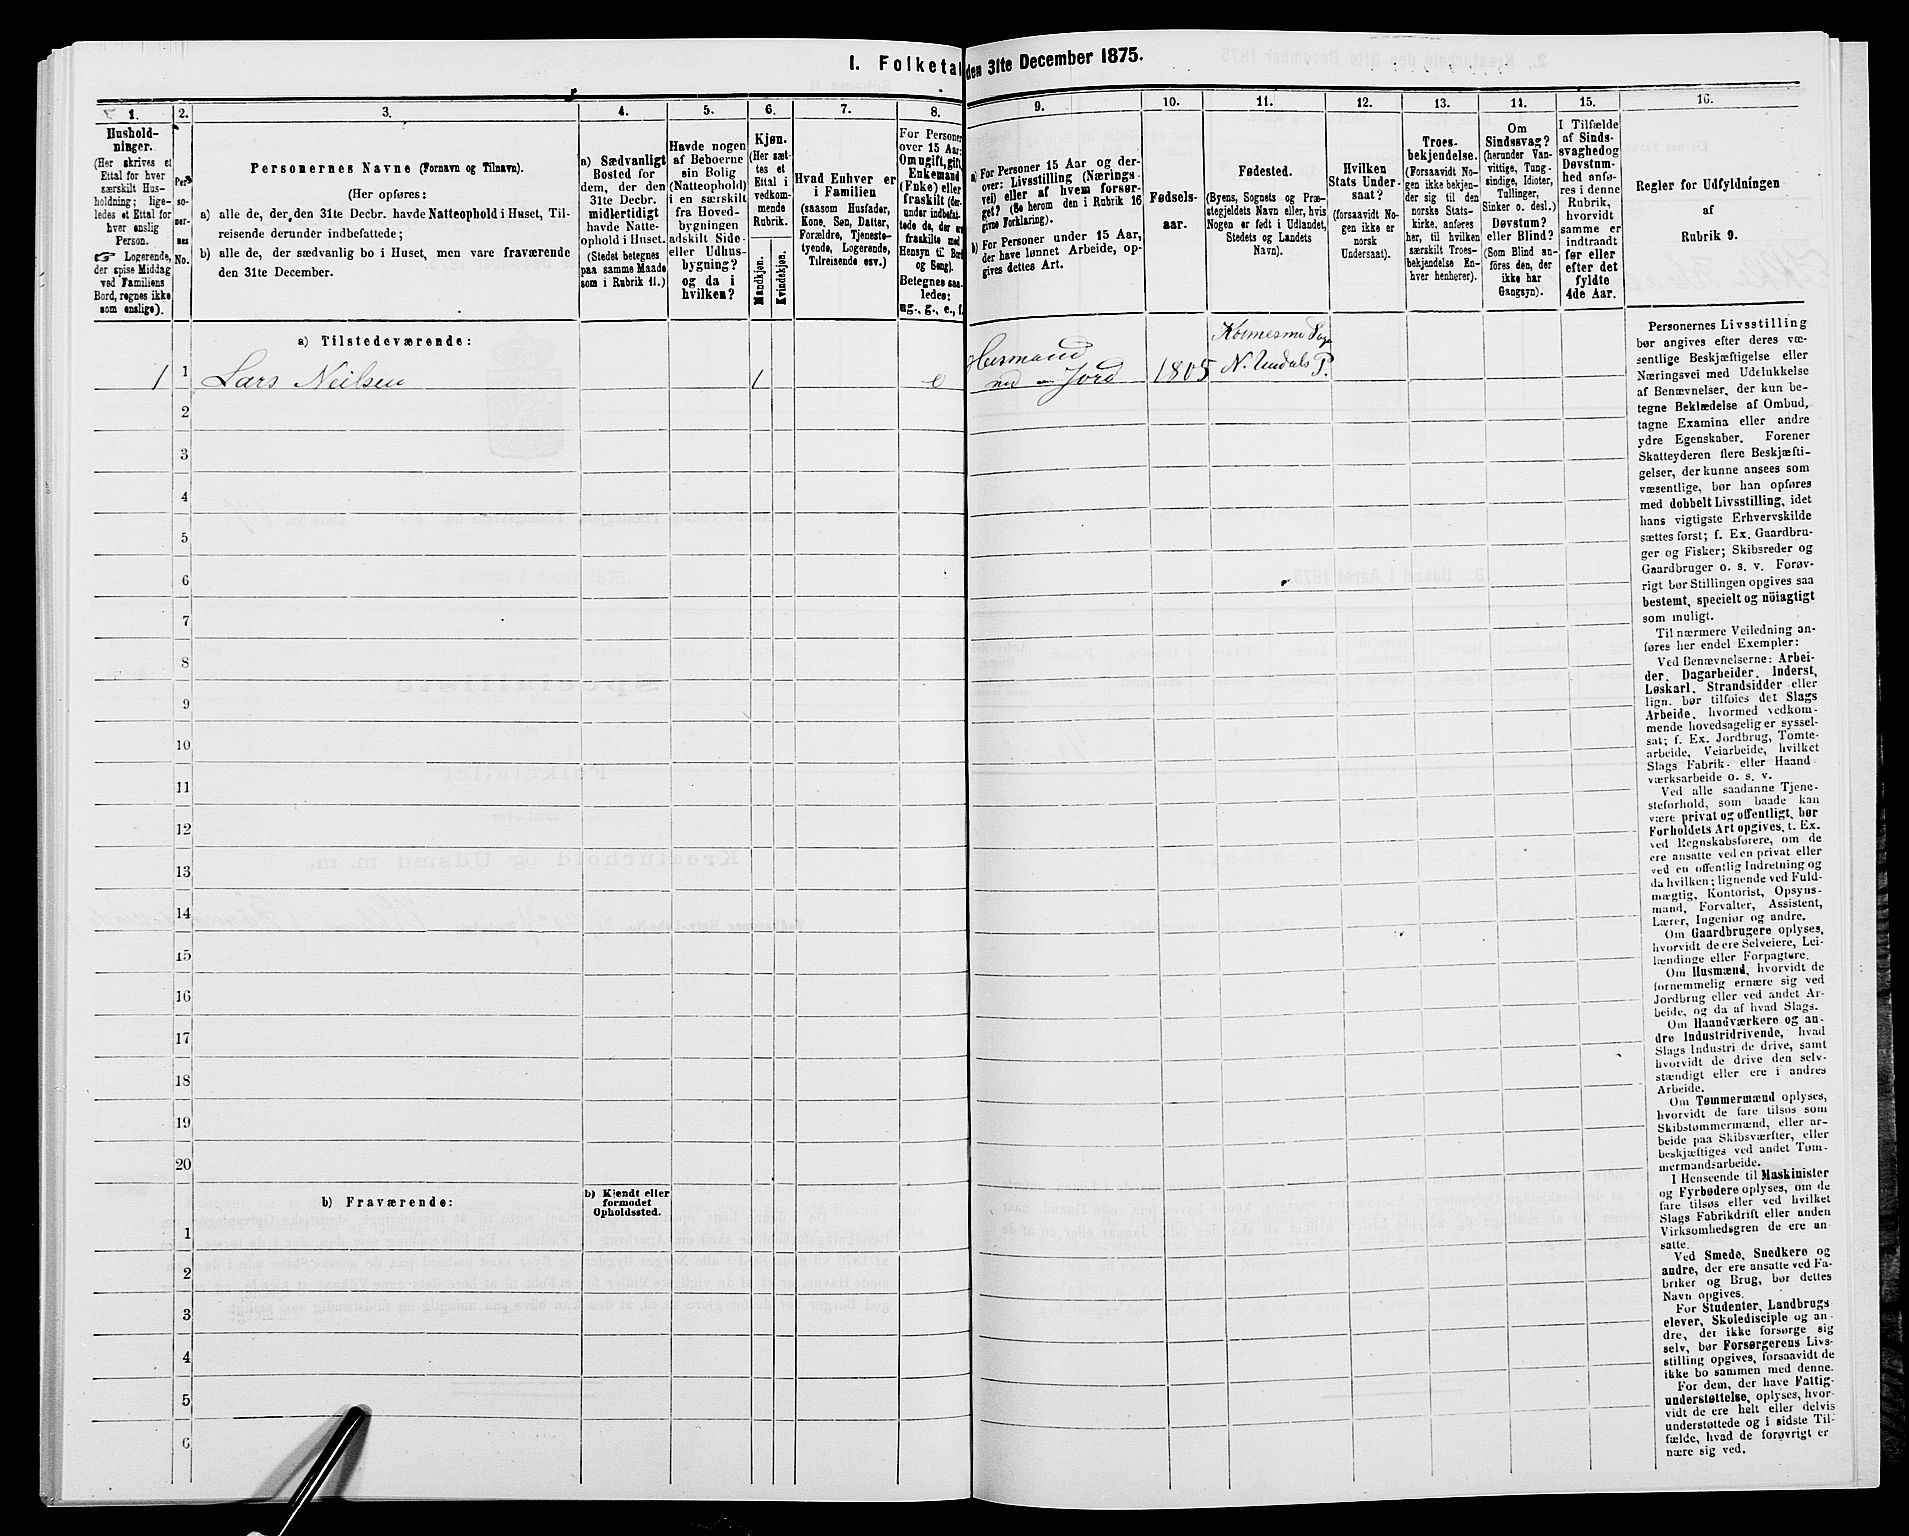 1. Folketal den 31te December 1875.
1.
Hushold-
ninger.
(Her skrives et
Ettal for hver
særskilt Hus-
holdning; lige-
ledes et Ettal for
hver enslig
Person.
Logerende,
der spise Middag
ved Familiens
Bord, regnes ikke
som enslige).
2.
Per-
so-
ner-
nes
No.
3.
Personernes Navne (Fornavn og Tilnavn).
(Her opføres:
a) alle de, der den 31te Decbr. havde Natteophold i Huset, Til-
reisende derunder indbefattede;
b) alle de, der sædvanlig bo i Huset, men vare fraværende
den 31te December.
4.
a) Sædvanligt
Bosted for
dem, der den
31te Decbr.
midlertidigt
havde Natte-
ophold i Huset.
(Stedet betegnes
paa samme Maade
som i Rubrik 11.)
5.
Havde nogen
af Beboerne
sin Bolig
(Natteophold)
i en særskilt
fra Hoved-
bygningen
adskilt Side-
eller Udhus-
bygning?
og da i
hvilken?
6.
Kjøn.
(Her sæt-
tes et
Ettal i
vedkom-
mende
Rubrik.
Mandkjøn.
Kvindekjøn.
7.
Hvad Enhver er
i Familien
(saasom Husfader,
Kone, Søn, Datter,
Forældre, Tjeneste-
tyende, Logerende,
Tilreisende osv.)
8.
For Personer
over 15 Aar:
Om ugift, gift,
Enkemand
(Enke) eller
fraskilt (der-
under indbefat-
tede de, der ere
fraskilte med
Hensyn til Bord
og Seng).
Betegnes saa-
ledes:
ug., g., e., f.
9.
a) For Personer 15 Aar og der-
over: Livsstilling (Nærings-
vei) eller af hvem forsør-
get? (Se herom den i Rubrik 16
givne Forklaring).
b) For Personer under 15 Aar,
der have lønnet Arbeide, op-
gives dettes Art.
10.
Fødsels-
aar.
11.
Fødested.
(Byens, Sognets og Præ-
stegjeldets Navn eller, hvis
Nogen er født i Udlandet,
Stedets og Landets
Navn).
12.
Hvilken
Stats Under-
saat?
(forsaavidt No-
gen ikke er
norsk
Undersaat).
13.
Troes-
bekjendelse.
(Forsaavidt No-
gen ikke bekjen-
der sig til den
norske Stats-
kirke, anføres
her, til hvilken
særskilt Troes-
bekjendelse En-
hver henhører).
14.
Om
Sindssvag?
(herunder Van-
vittige, Tung-
sindige, Idioter,
Tullinger,
Sinker o. desl.)
Døvstum?
eller Blind?
(Som Blind an-
føres den, der
ikke har
Gangsyn).
15.
I Tilfælde
af Sinds-
svaghed og
Døvstum-
hed anfø-
res i denne
Rubrik,
hvorvidt
samme er
indtraadt
før eller
efter det
fyldte
4de Aar.
16.
Regler for Udfyldningen
af
Rubrik 9.
a) Tilstedeværende:
1 1 Lars Neilsen 1 e Husmand 1805 N. Undals P.
med Jord
2
3
4
5
6
7
8
9
10
11
12
13
14
15
16
17
18
19
20
b) Fraværende:
b) Kjendt eller
formodet
Opholdssted.
1
2
3
4
5
6
Personernes Livsstilling
bør angives efter deres væ-
sentlige Beskjæftigelse eller
Næringsvei med Udelukkelse
af Benævnelser, der kun be-
tegne Beklædelse af Ombud,
tagne Examina eller andre
ydre Egenskaber. Forener
Skatteyderen flere Beskjæfti-
gelser, der kunne ansees som
væsentlige, bør han opføres
med dobbelt Livsstilling, idet
hans vigtigste Erhvervskilde
sættes først; f. Ex. Gaardbru-
ger og Fisker; Skibsreder og
Gaardbruger o. s. v. Forøv-
rigt bør Stillingen opgives saa
bestemt, specielt og nöiagtigt
som muligt.
Til nærmere Veiledning an-
føres her endel Exempler:
Ved Benævnelserne: Arbei-
der, Dagarbeider, Inderst,
Løskarl, Strandsidder eller
lign. bør tilføies det Slags
Arbeide, hvormed vedkom-
mende hovedsagelig er syssel-
sat; f. Ex. Jordbrug, Tomte-
arbeide, Veiarbeide, hvilket
Slags Fabrik- eller Haand
værksarbeide o. s. v.
Ved alle saadanne Tjene-
steforhold, som baade kan
være privat og offentligt, bør
Forholdets Art opgives, t. Ex.
ved Regnskabsførere, om de
ere ansatte ved en privat eller
ved en offentlig Indretning og
da hvilken; lignende ved Fuld-
mægtig, Kontorist, Opsyns-
mand, Forvalter, Assistent,
Lærer, Ingeniør og andre.
Om Gaardbrugere oplyses,
hvorvidt de ere Selveiere, Lei-
lændinge eller Forpagtere.
Om Husmænd, hvorvidt de
fornemmelig ernære sig ved
Jordbrug eller ved andet Ar-
beide, og da af hvad Slags.
Om Haandværkere og an-
dre Industridrivende, hvad
Slags Industri de drive, samt
hvorvidt de drive den selv-
stændigt eller ere i andres
Arbeide.
Om Tømmermænd oplyses,
hvorvidt de fare tilsøs som
Skibstømmermænd, eller ar-
beide paa Skibsværfter, eller
beskjæftiges ved andet Tøm-
mermandsarbeide.
I Henseende til Maskinister
og Fyrbødere oplyses, om de
fare tilsøs eller ved hvilket
Slags Fabrikdrift eller anden
Virksomhedsgren de ere an-
satte.
Ved Smede, Snedkere og
andre, der ere ansatte ved Fa-
briker og Brug, bør dettes
Navn opgives.
For Studenter, Landbrugs
elever, Skoledisciple og an-
dre, der ikke forsørge sig
selv, bør Forsørgerens Livs-
stilling opgives, forsaavidt de
ikke bo sammen med denne.
For dem, der have Fattig-
understøttelse, oplyses, hvor-
vidt de ere helt eller delvis
understøttede og i sidste Til-
fælde, hvad de forøvrigt er
nære sig ved.